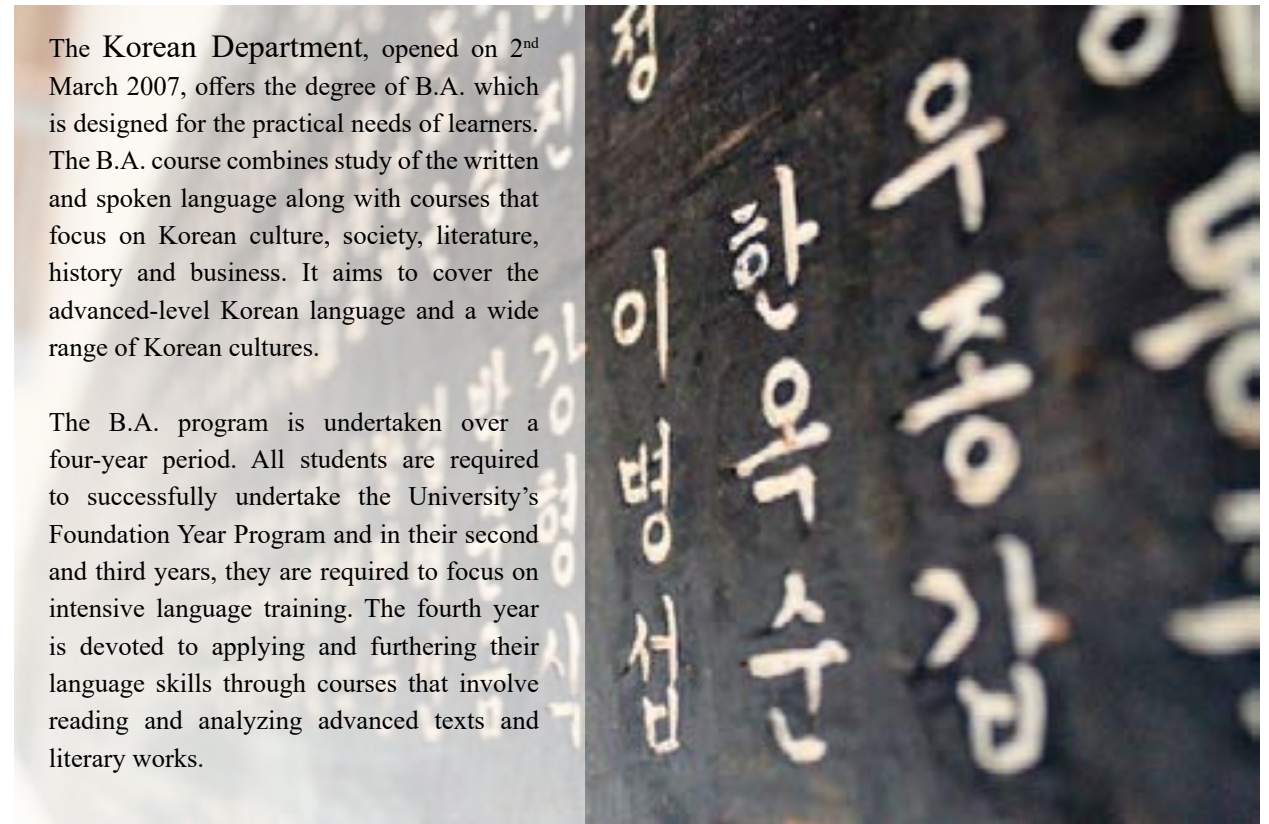 The Korean Department, opened on 2nd
March 2007, offers the degree of B.A. which
is designed for the practical needs of learners.
The B.A. course combines study of the written
and spoken language along with courses that
focus on Korean culture, society, literature,
history and business. It aims to cover the
advanced-level Korean language and a wide
range of Korean cultures.
The B.A. program is undertaken over a
four-year period. All students are required
to successfully undertake the University’s
Foundation Year Program and in their second
and third years, they are required to focus on
intensive language training. The fourth year
is devoted to applying and furthering their
language skills through courses that involve
reading and analyzing advanced texts and
literary works.
청
이병섭
한옥순
우종갑